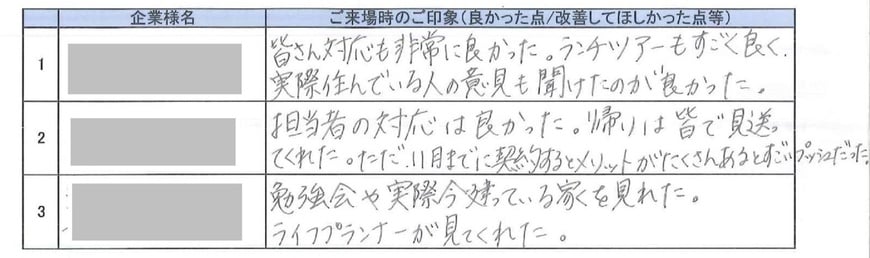 企業様名 ご来場時のご印象(良かった点/改善してほしかった点等)
1 皆さん対応も非常に良かった。ランチツアーもすごく良く、
実際住んでいる人の意見も聞けたのが良かった。
2 担当者の対応は良かった。帰りは皆で見送っ
てくれた。ただ、11月までに契約するとメリットがたくさんあるとすごいプッシュだった。
3 勉強会や実際今建っている家々を見れた。
ライフプランナーが見てくれた。